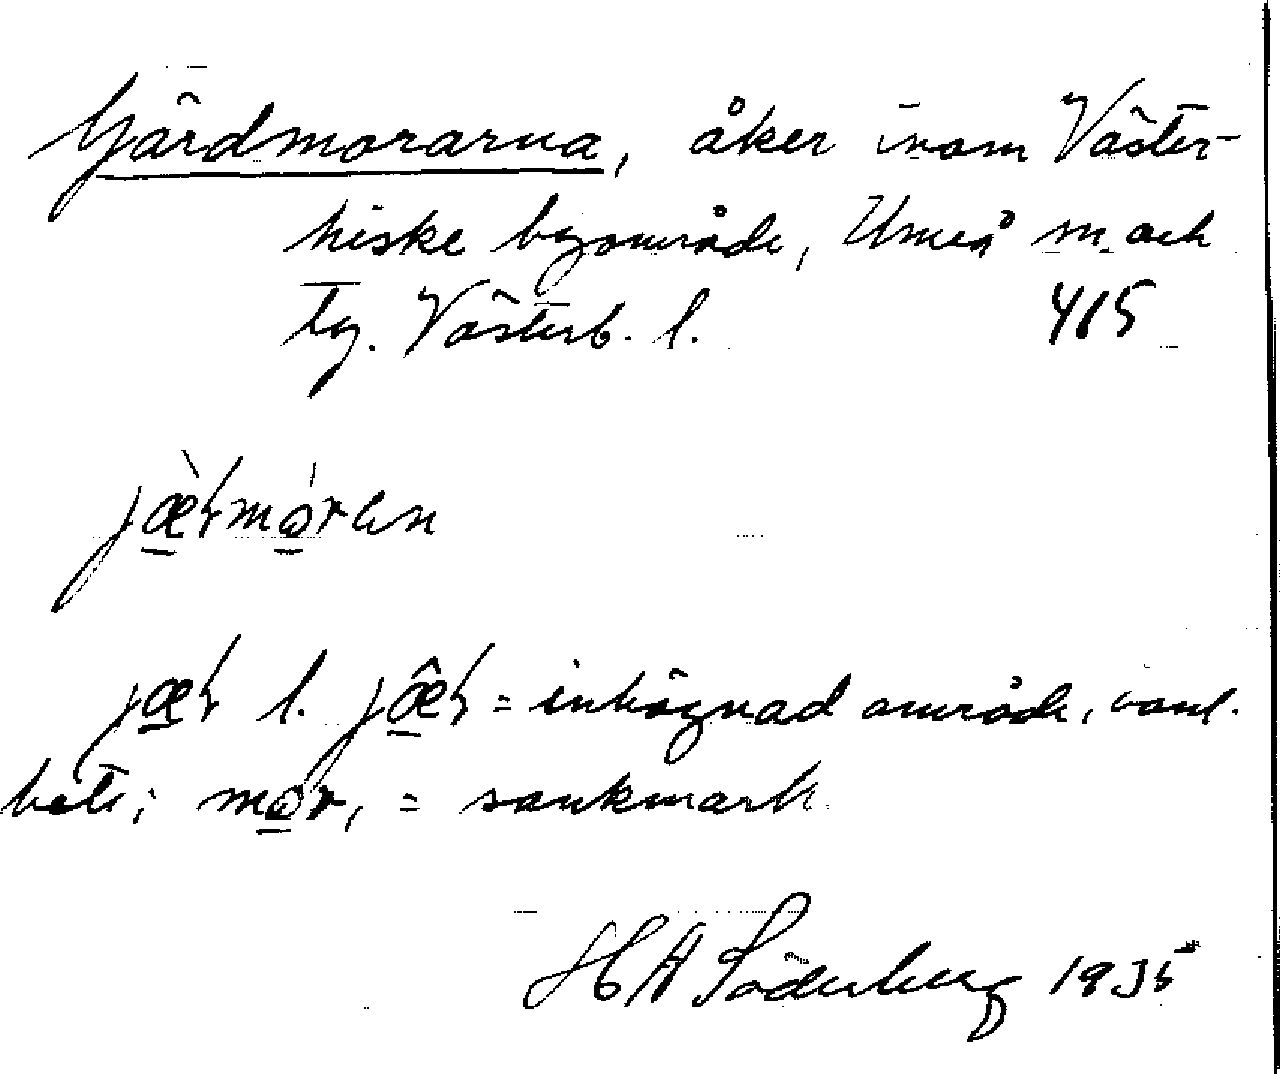 Gärdmorarna, åker inom Väster-
hiske byområde, Umeå m. och
tg. Västerb. l. 415
jæ̀rmǿran
jær l. jæ̂r = inhägnad område, vanl.
bete; mør, = sankmark
HA Söderberg 1935